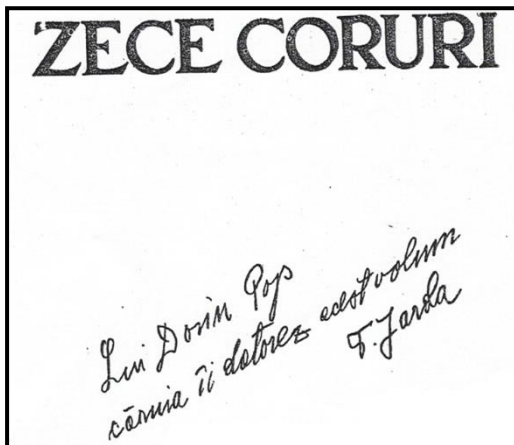 ZECE CORURI
Lui Dorin Pop
căruia îi datorez acest volum
T. Jarda